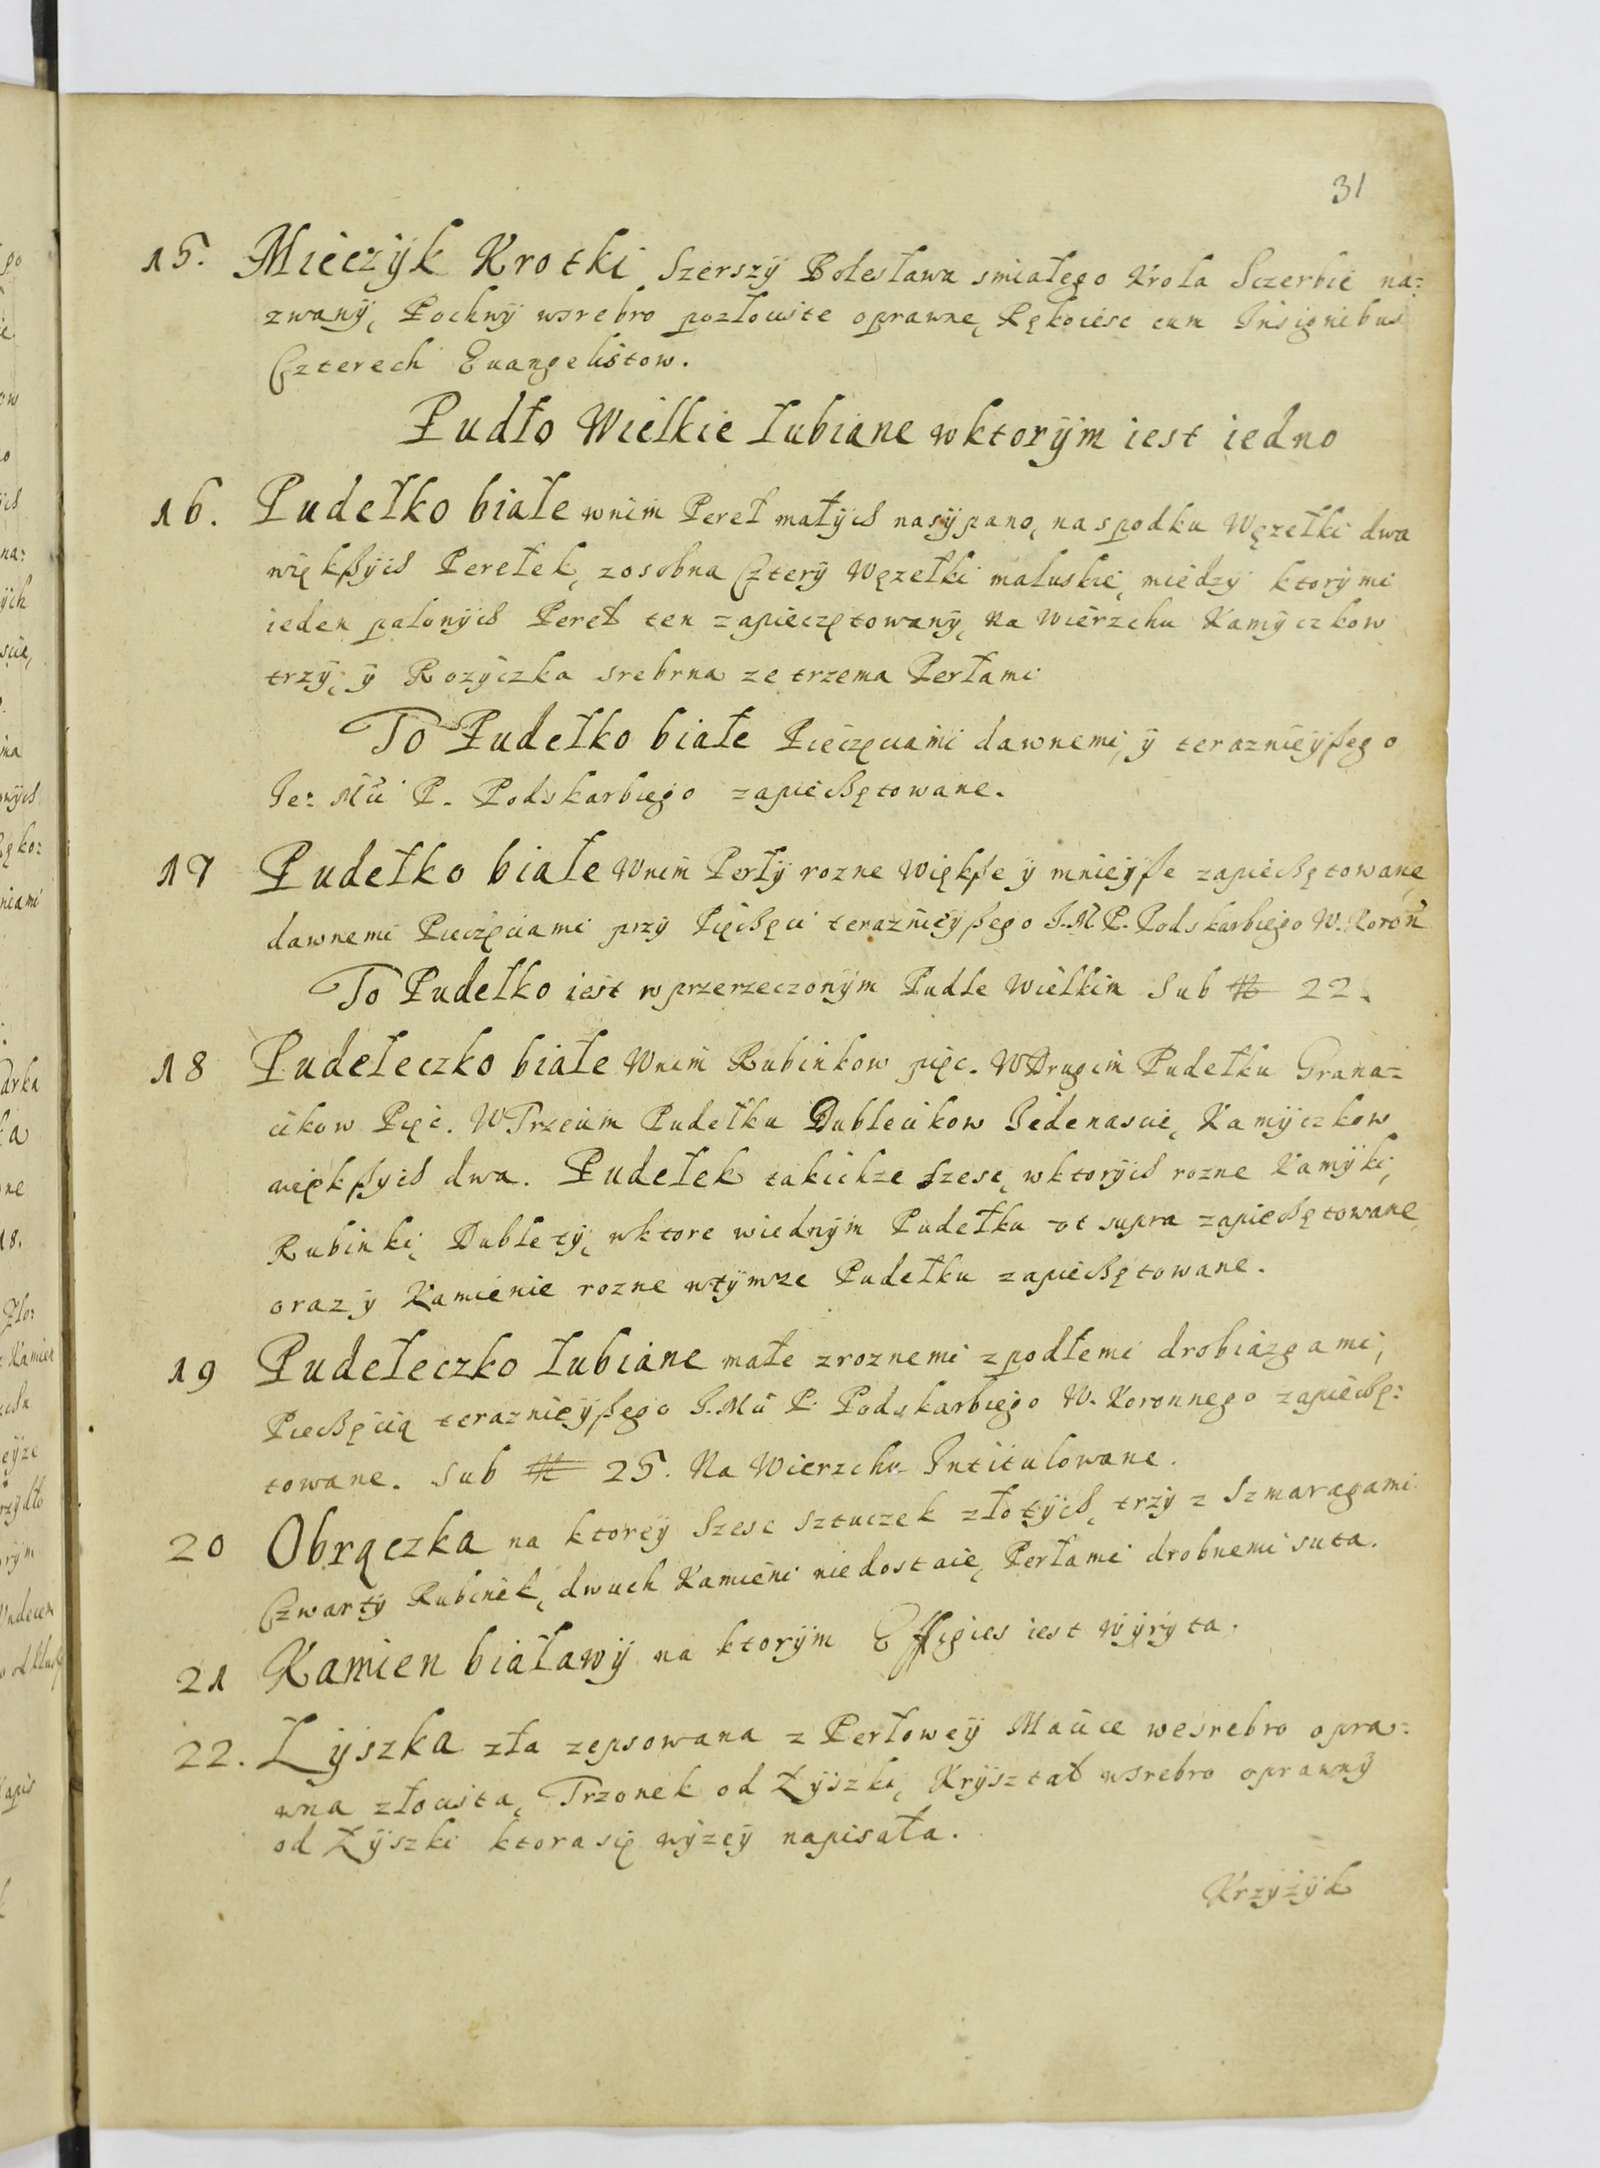 31
15. Mieczÿk Krotki Szerszÿ Bolesława smiałego Krola Sczerbie na=
zwanÿ, Pochwÿ wsrebro pozłociste oprawne, Rękoiesc cum Insignibus
Czterech Euangelistow.
Pudło Wielkie łubiane wktorÿm iest iedno
16. Pudełko białe wnim Pereł małÿch nasÿpano, naspodku Węzełki dwa
więkßÿch Perełek, zosobna Czterÿ Węzełki maluskie, miedzÿ ktorÿmi
ieden palonÿch Pereł ten zapieczętowanÿ, Na Wierzchu Kamÿczkow
trzÿ, ÿ Rozÿczka srebrna ze trzema Perłami
To Pudełko białe Pieczęciami dawnemi, ÿ teraznieÿßego
Je: Mći P. Podskarbiego zapieczętowane.
17 Pudełko białe Wnim Perłÿ rozne Więkße ÿ mnieÿße zapieczętowane,
dawnemi Pieczęciami przÿ Pięczęci teraznieÿßego J.M.P. Podskarbiego W. Koroñ
To Pudełko iest wprzerzeczonÿm Pudle Wielkim Sub № 22.
18 Pudełeczko białe Wnim Rubinkow pięc. WDrugim Pudełku Grana=
cikow Pięc. WTrzecim Pudełku Dublecikow Jedenascie, Kamÿczkow
więkßÿch dwa. Pudełek takichze szesc, wktorÿch rozne Kamÿki,
Rubinki, Dubletÿ, wktore wiednÿm Pudełku ut supra zapieczętowane,
oraz ÿ Kamienie rozne wtÿmze Pudełku zapieczętowane.
19 Pudełeczko łubiane małe zroznemi zpodłemi drobiazgami,
Pieczęcią teraznieÿßego J.Mći P. Podskarbiego W. Koronnego zapieczę=
towane. Sub № 25. Na Wierzchu Intitulowane.
20 Obrączka na ktoreÿ Szesc sztuczek złotÿch, trzÿ z Szmaragami
Czwartÿ Rubinek, dwuch Kamieni niedostaie, Perłami drobnemi suta.
21 Kamien białawÿ na ktorÿm Effigies iest wÿrÿta.
22. Łÿszka zła zepsowana z Perłoweÿ Macice wesrebro opra=
wna złocista, Trzonek od Łÿszki, Krÿształ wsrebro oprawnÿ
od Łÿszki ktora się wÿzeÿ napisała.
Krzÿzÿk